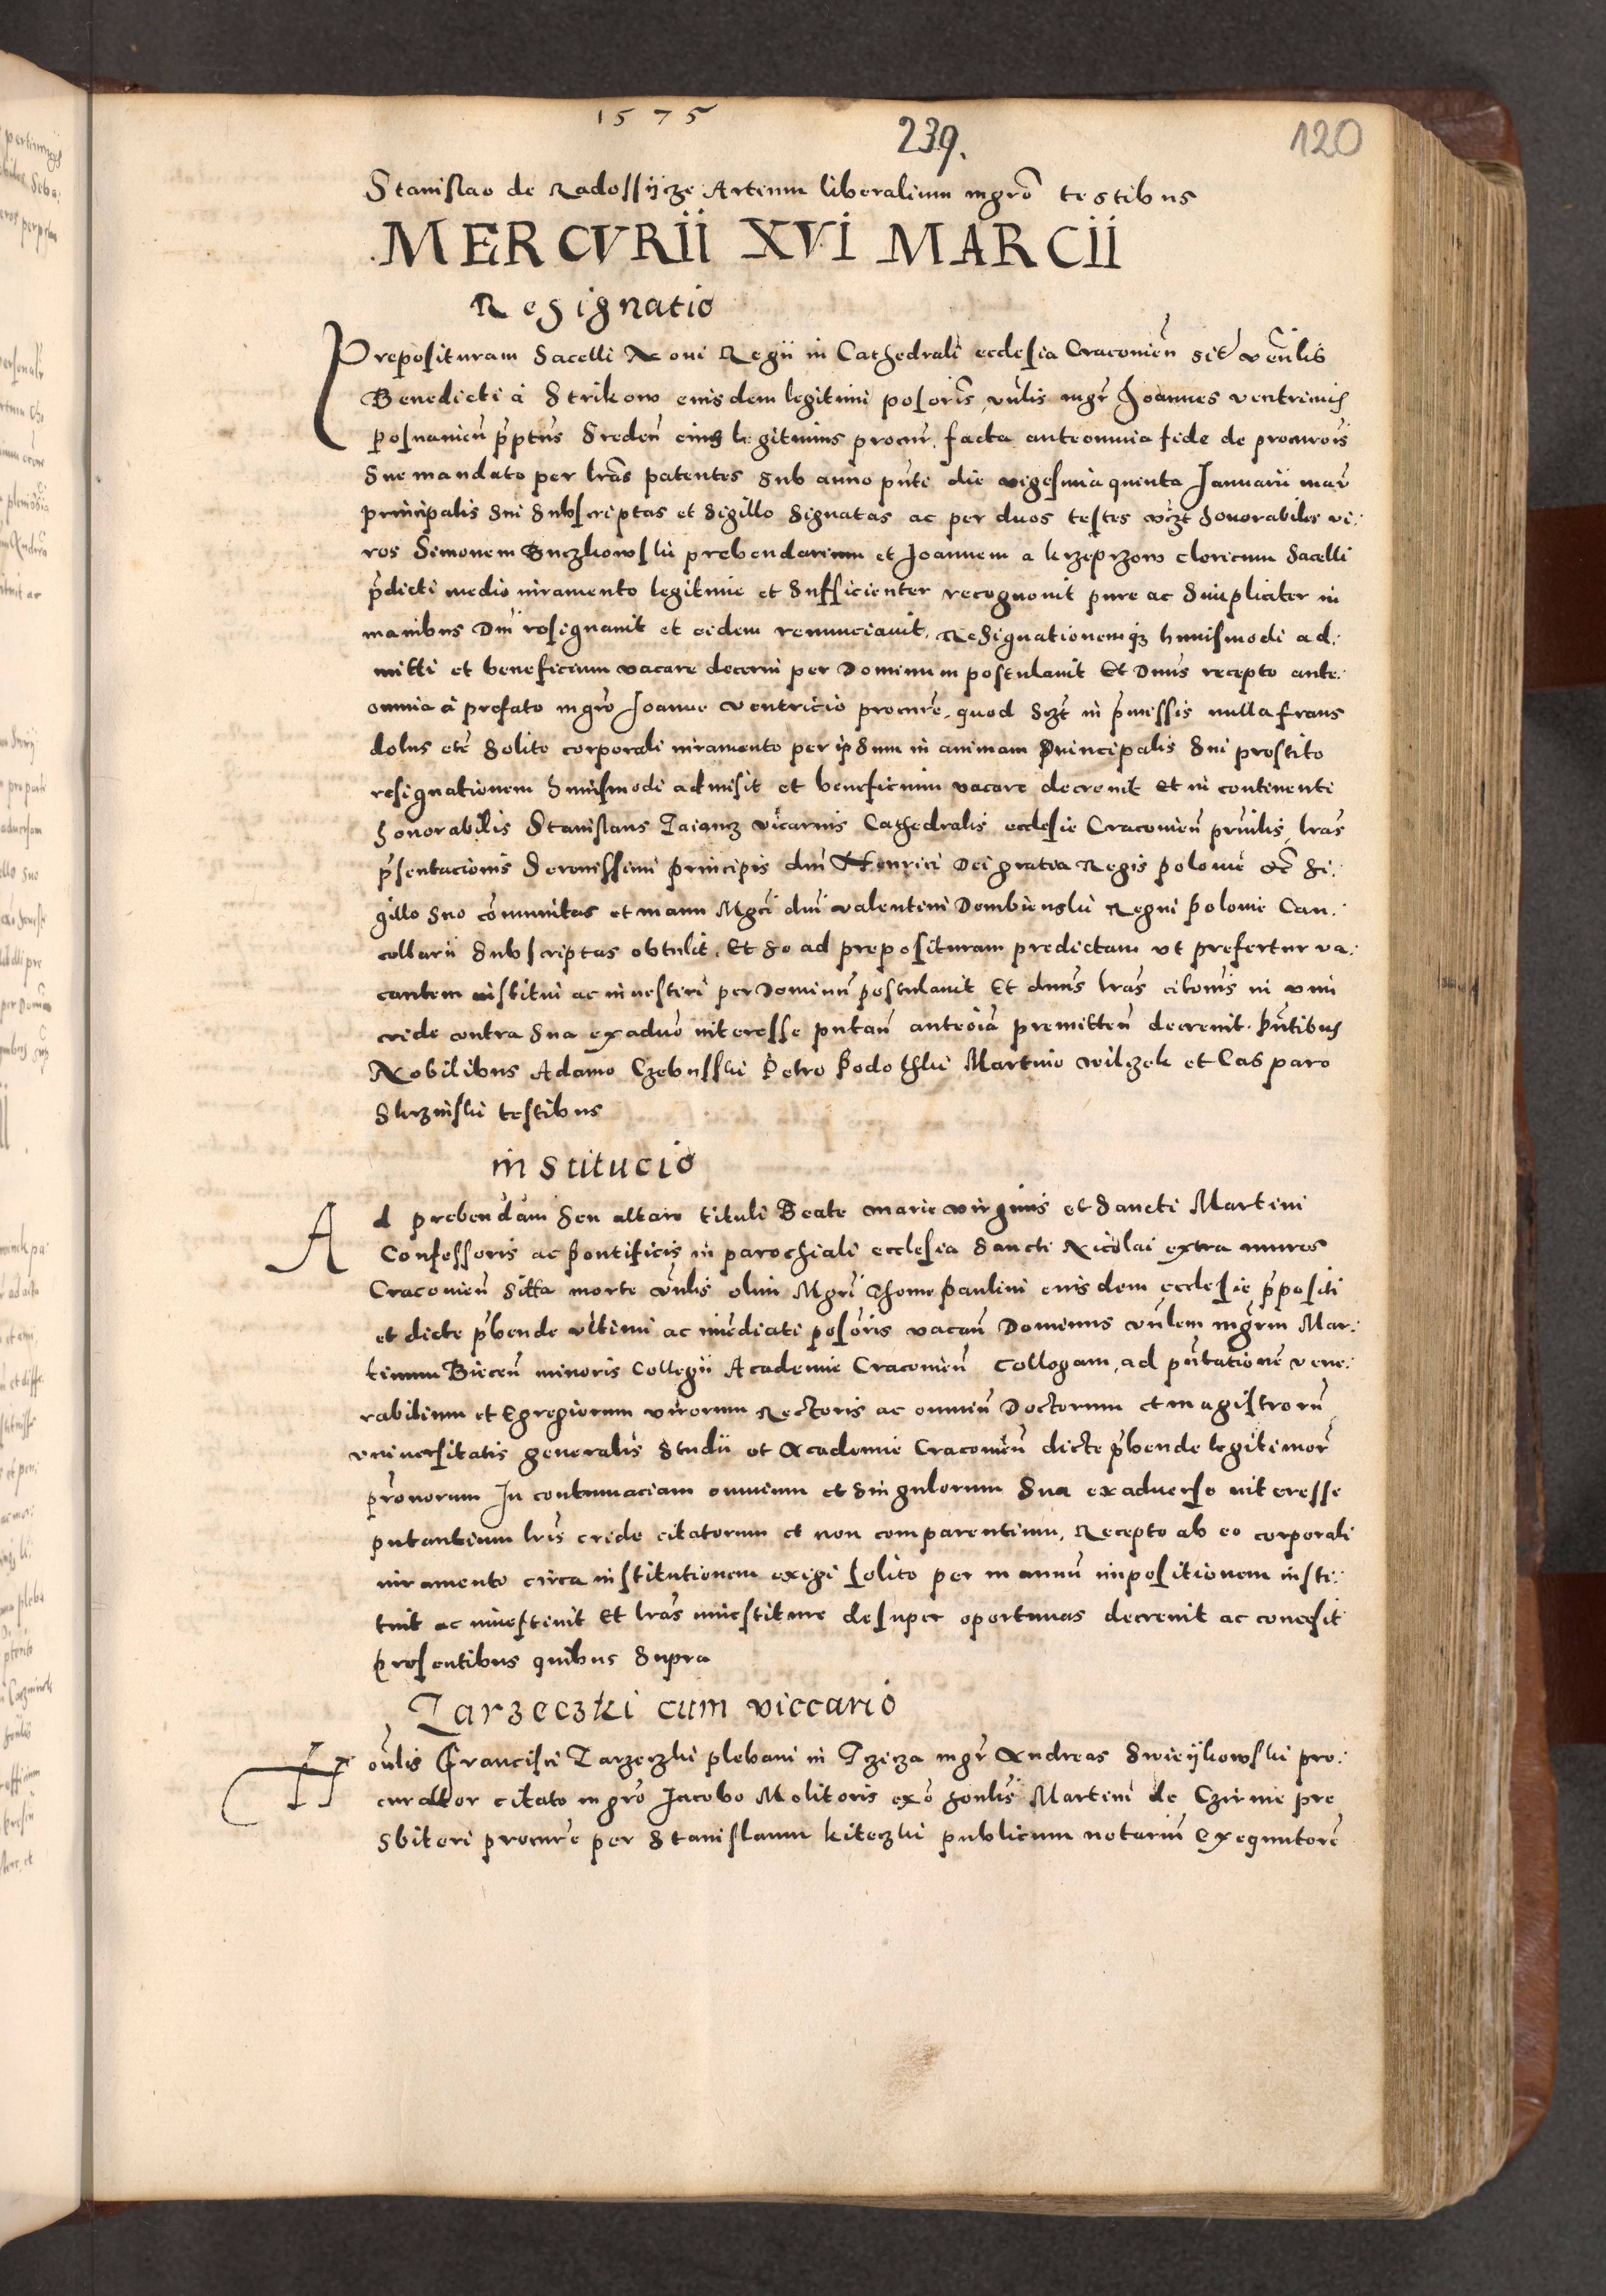 1575
239.
120
Stanislao de Radossijcze Artium liberalium mgrõ testibus
MERCVRII XVI MARCII
Resignatio
Preposituram Sacelli Noui Regii in Cathedrali ecclesia Cracouieñ sit̃ veñlis
Benedicti à Strikow eiusdem legitimi posoris̃, vñlis mgr̃ Joannes ventrinus
posnanieñ p̃ptus Sredeñ eius legitimus procur̃. facta ante omnia fide de procurois̃
Sue mandato per lrãs patentes sub anno pñti die vigesima quinta Januarii manũ
principalis sui subscriptas et sigillo signatas ac per duos testes vczt honorabiles vi:
ros Simonem Buczkowski prebendarium et Joannem a krzeprzow clericum Sacelli
p̃dicti medio iuramento legitime et sufficienter recognouit pure ac simpliciter in
manibus Dñi resignauit et eidem renunciauit, Resignationemq₃ huiusmodi ad:
mitti et beneficium vacare decerni per Dominum postulauit Et Dñus recepto ante:
omnia à prefato mgrõ Joanne ventricio procurẽ, quod sczt in p̃missis nulla fraus
dolus etc̃ solito corporali iuramento per ipsum in animam Principalis sui prestito
resignationem huiusmodi admisit et beneficium vacare decreuit Et in continenti
honorabilis Stanislaus Zaiancz vicarius Cathedralis ecclesie Cracouieñ pñulis lrãs
p̃sentacionis Serenissimi principis dñi Henrici Dei gratia Regis polonie etc̃ si:
gillo suo cõmunitas et manu Mgci dñi valentini Dembienski Regni polonie Can:
cellarii subscriptas obtulit, Et se ad preposituram predictam vt prefertur va:
cantem institui ac inuestiri per Dominũ postulauit Et dñus lrãs citõnis in vim
cride contra sua ex aduõ interesse putañ anteoĩa premitteñ decreuit. pñtibus
Nobilibus Adamo Czebusski Petro Podoski Martino wilczek et Casparo
Skrzinski testibus
institucio
Ad prebendam seu altare tituli Beate marie virginis et sancti Martini
Confessoris ac Pontificis in parochiali ecclesia sancti Nicolai extra muros
Cracouieñ sitta morte vñlis olim Mgri Thome paulini eiusdem ecclesie p̃positi
et dicte p̃bende vltimi ac imẽdiati posõris vacañ Dominus vñlem mgrm Mar:
tinum Bieceñ minoris Collegii Academie Cracouieñ Collegam, ad pñtationẽ vene:
rabilium et Egregiorum virorum Rectoris ac omniũ Doctorum et magistrorũ
vniuersitatis generalis studii et Academie Cracouieñ dicte p̃bende legitimor̃
p̃ronorum In contumaciam omnium et singulorum sua ex aduerso interesse
putantium lris cride citatorum et non comparentium, Recepto ab eo corporali
iuramento circa institutionem exigi solito per manuũ impositionem insti:
tuit ac inuestiuit Et lrãs inuestiture desuper oportunas decreuit ac concesit
presentibus quibus supra
Zarzeczki cum viccario
Hoñlis Francisci Zarzeczki plebani in Tzicza mgr̃ Andreas Swieijkowski pro:
curattor citato mgrõ Jacobo Molitoris exõ honlis Martini de Czirnie pre
sbiteri procurẽ per Stanislaum kiteczki publicum notariũ Exequutorẽ